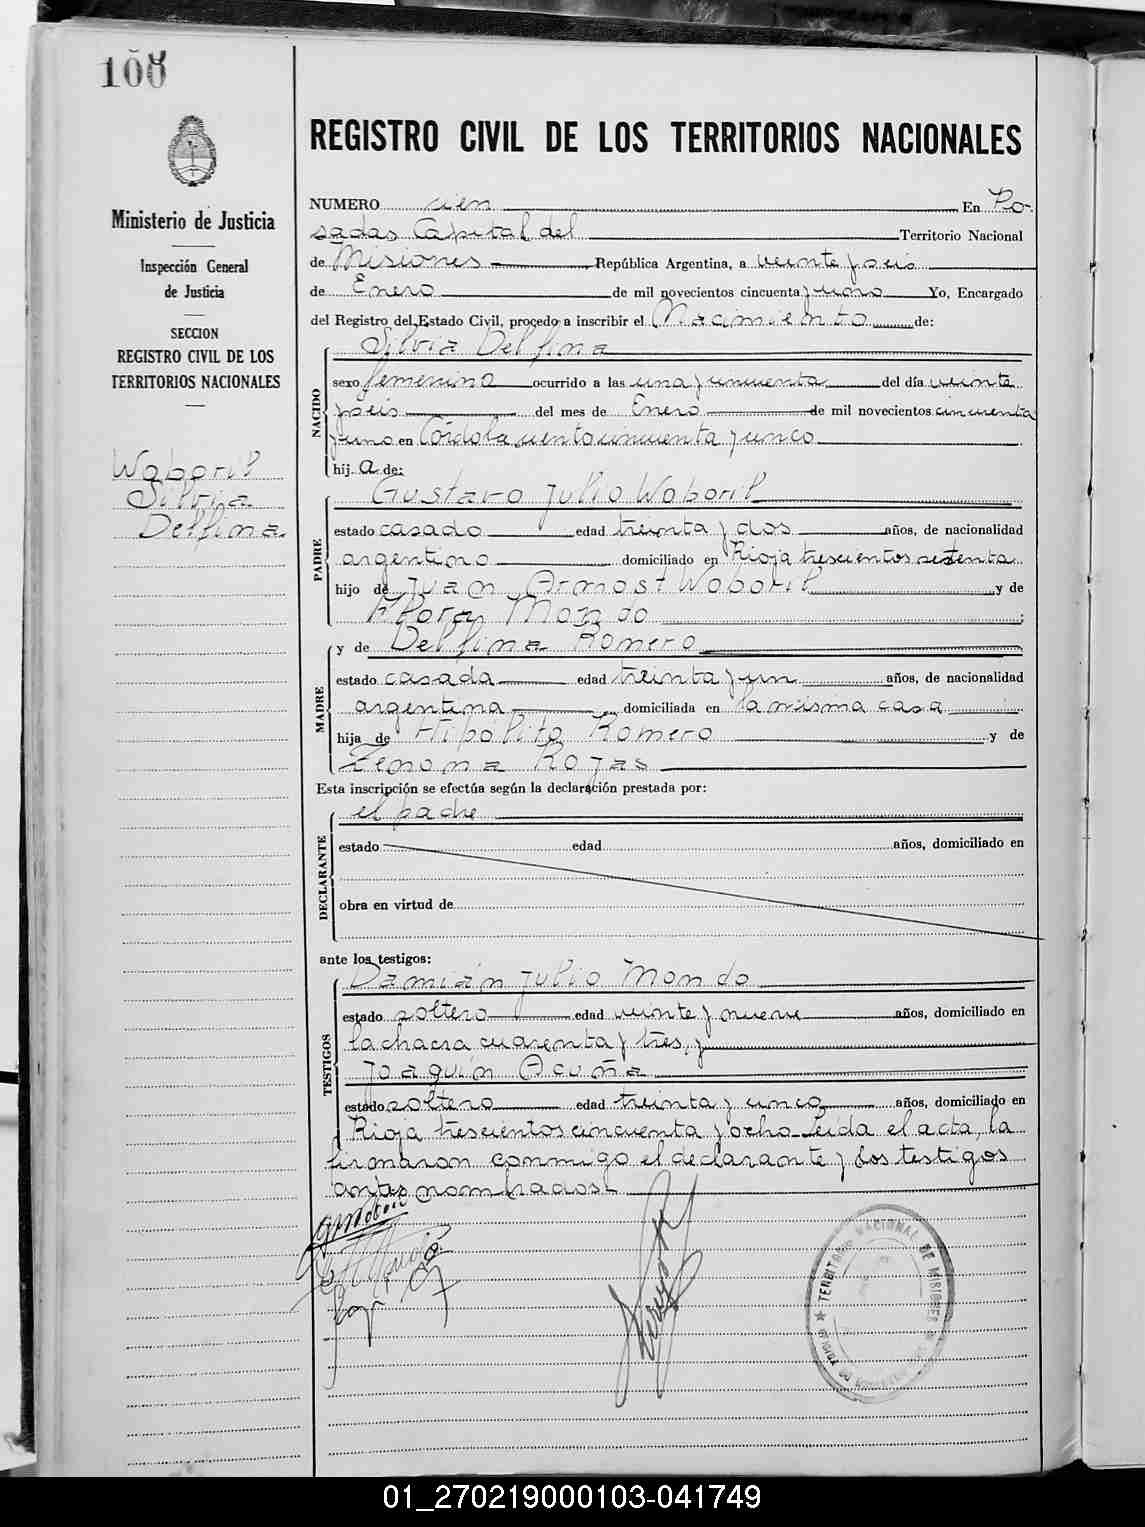 100
Ministerio de Justicia
Inspección General
de Justicia
SECCION
REGISTRO CIVIL DE LOS
TERRITORIOS NACIONALES
Woboril
Silvia
Delfina.
REGISTRO CIVIL DE LOS TERRITORIOS NACIONALES
NUMERO cien En Po-
sadas Capital del Territorio Nacional
de Misiones República Argentina, a veinte y seis
de Enero de mil novecientos cincuenta y uno Yo, Encargado
del Registro del Estado Civil, procedo a inscribir el Nacimiento de:
NACIDO
Silvia Delfina
sexo femenino ocurrido a las una y cincuenta del día veinte
y seis del mes de Enero de mil novecientos cincuenta
y uno en Córdoba ciento cincuenta y cinco
hij a de:
PADRE
Gustavo Julio Woboril
estado casado edad treinta y dos años, de nacionalidad
argentino domiciliado en Rioja trescientos setenta
hijo de Juan Armost Woboril y de
Flora Mondo ;
MADRE
y de Delfina Romero
estado casada edad treinta y un años, de nacionalidad
argentina domiciliada en la misma casa
hija de Hipolito Romero y de
Zenona Rojas
Esta inscripción se efectúa según la declaración prestada por:
DECLARANTE
el padre
estado edad años, domiciliado en
obra en virtud de
ante los testigos:
TESTIGOS
Damián Julio Mondo
estado soltero edad veinte y nueve años, domiciliado en
la chacra cuarenta y tres, y
Joaquin Acuña
estado soltero edad treinta y cinco años, domiciliado en
Rioja trescientos cincuenta y ocho Leida el acta, la
firmaron conmigo el declarante y los testigos
antes nombrados.
TERRITORIO NACIONAL DE MISIONES
01_270219000103-041749